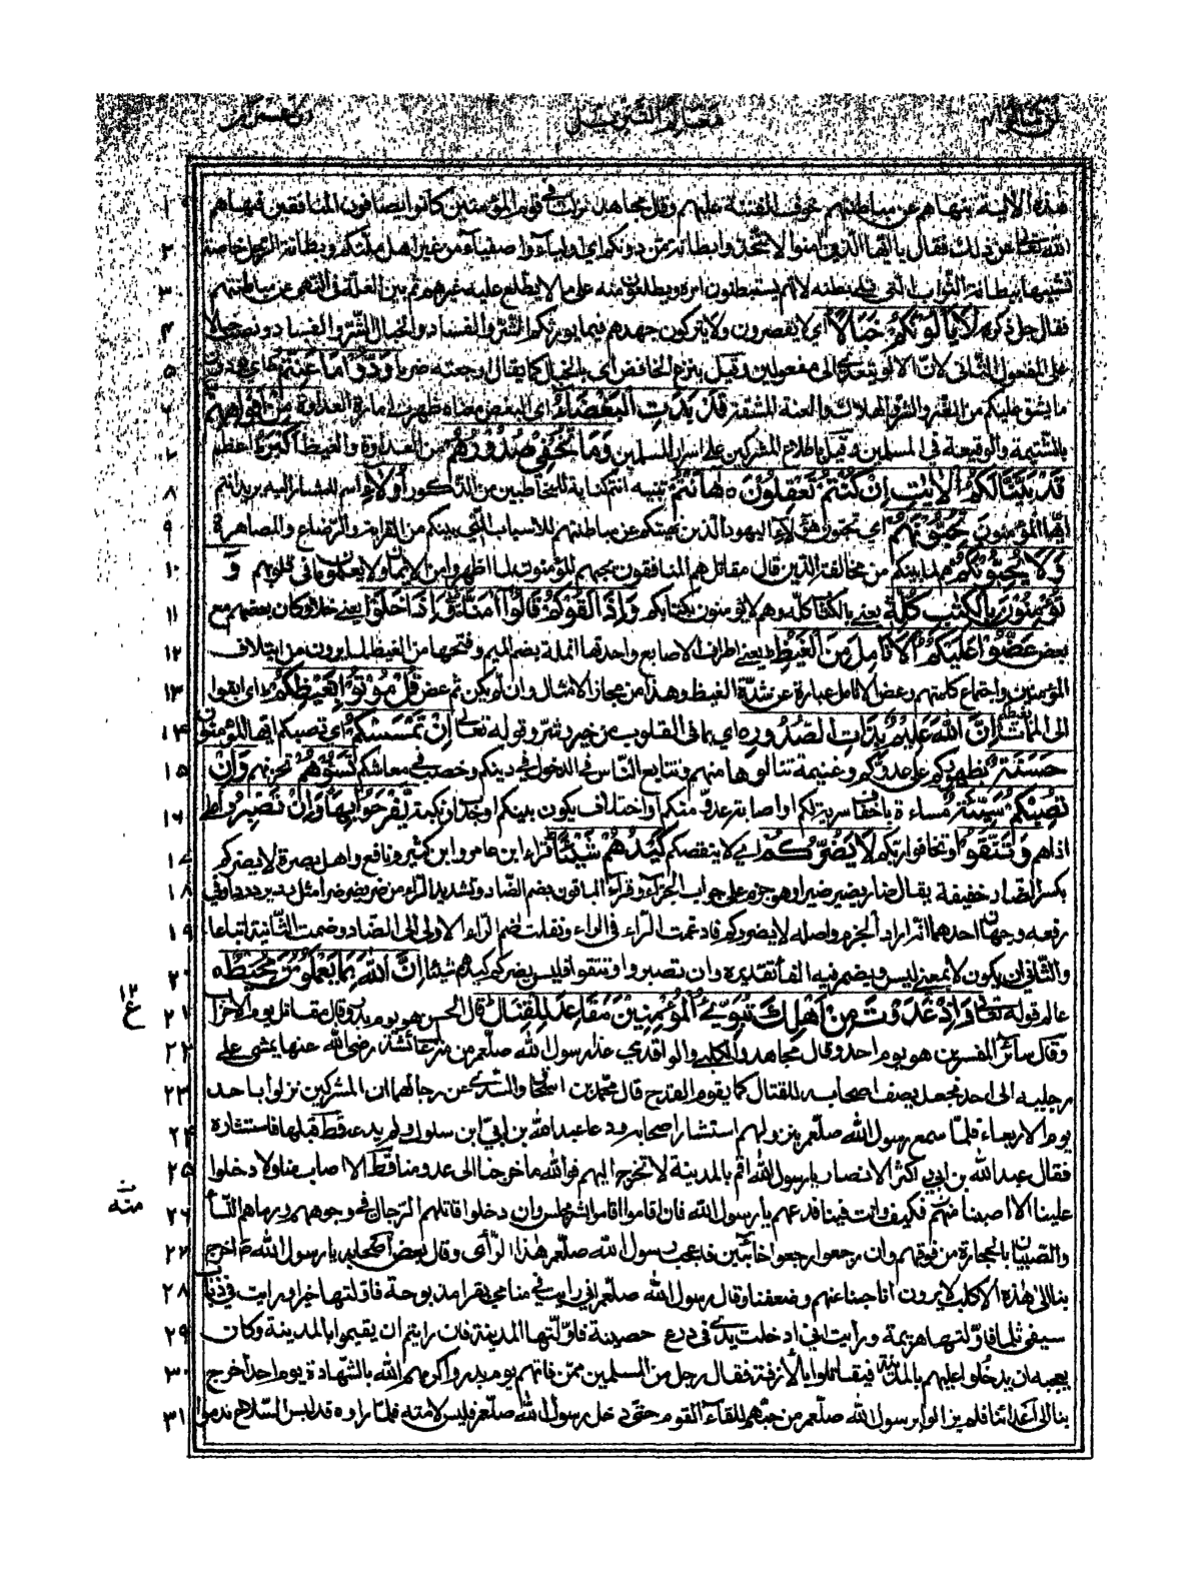 معالم التنزيل
هذه الاية ينهاهم عن مباطنتهم خوف الفتنة عليهم وقال مجاهد نزلت في قوم من المؤمنين كانوا يصافون المنافقين فنهاهم ١
الله تعالى عن ذلك فقال يا ايها الذين امنوا لا تتخذوا بطانة من دونكم اى اولياء واصفياء من غير اهل ملتكم وبطانة الرجل خاصته ٢
تشبيها ببطانة الثواب التى تلى بطنه لانهم يستبطنون امره ويطلعون منه على ما لا يطلع عليه غيرهم ثم بين العلة فى النهى عن مباطنتهم ٣
فقال جل ذكره لَا يَأْلُونَكُمْ خَبَالًا اى لا يقصرون ولا يتركون جهدهم فيما يورثكم الشر والفساد والخبال الشر والفساد ونصب خبالا ٤
على المفعول الثانى لان الالو يتعدى الى مفعولين وقيل بنزع الخافض اى بالخبال كما يقال اوجعته ضربا وَدُّوا مَا عَنِتُّمْ اى يودون ٥
ما يشق عليكم من الضر والشر والهلاك والعنة المشقة قَدْ بَدَتِ الْبَغْضَاءُ اى البغض معناه ظهرت امارة العداوة مِنْ أَفْوَاهِهِمْ ٦
بالشتيمة والوقيعة فى المسلمين وقيل باطلاع المشركين على اسرار المسلمين وَمَا تُخْفِي صُدُورُهُمْ من العداوة والغيظ أَكْبَرُ اعظم ٧
قَدْ بَيَّنَّا لَكُمُ الْآيٰتِ إِنْ كُنْتُمْ تَعْقِلُونَ هَا أَنْتُمْ تنبيه انتم كناية للمخاطبين من الذكور أُولَاءِ اسم للمشار اليه يريد انتم ٨
ايها المؤمنون تُحِبُّونَهُمْ اى تحبون هؤلاء اليهود الذين نهيتكم عن مباطنتهم للاسباب التى بينكم من القرابة والرضاع والمصاهرة ٩
وَلَا يُحِبُّونَكُمْ لما بينكم من مخالفة الدين قال مقاتل هم المنافقون يحبهم المؤمنون لما اظهروا من الايمان ولا يعلمون ما فى قلوبهم وَ ١٠
تُؤْمِنُونَ بِالْكِتٰبِ كُلِّهِ يعنى بالكتاب كله وهم لا يؤمنون بكتابكم وَإِذَا لَقُوكُمْ قَالُوا آمَنَّا وَإِذَا خَلَوْا يعنى خلا وكان بعضهم مع ١١
بعض عَضُّوا عَلَيْكُمُ الْأَنَامِلَ مِنَ الْغَيْظِ يعنى اطراف الاصابع واحدتها انملة بضم الميم وفتحها من الغيظ لما يرون من ايتلاف ١٢
المؤمنين واجتماع كلمتهم وعض الانامل عبارة عن شدة الغيظ وهذا من مجاز الامثال وان لم يكن ثم عض قُلْ مُوتُوا بِغَيْظِكُمْ اى ابقوا ١٣
الى الممات بغيظكم إِنَّ اللّٰهَ عَلِيمٌ بِذَاتِ الصُّدُورِ اى بما فى القلوب من خير وشر وقوله تعالى إِنْ تَمْسَسْكُمْ اى تصبكم ايها المؤمنون ١٤
حَسَنَةٌ بظهوركم على عدوكم وغنيمة تنالونها منهم وتتابع الناس فى الدخول فى دينكم وخصب فى معاشكم تَسُؤْهُمْ تحزنهم وَإِنْ ١٥
تُصِبْكُمْ سَيِّئَةٌ مساءة باخفاق سرية لكم او اصابة عدو منكم واختلاف يكون بينكم او جدب او نكبة يَفْرَحُوا بِهَا وَإِنْ تَصْبِرُوا على ١٦
اذاهم وَتَتَّقُوا وتخافوا ربكم لَا يَضُرُّكُمْ اى لا ينقصكم كَيْدُهُمْ شَيْئًا قراء ابن عامر وابن كثير ونافع واهل بصرة لا يضركم ١٧
بكسر الضاد خفيفة يقال ضار يضير ضيرا وهو جزم على جواب الجزاء وقرأ الباقون بضم الضاد وتشديد الراء من ضر يضر ضرا مثل رد يرد ردا وفى ١٨
رفعه وجهان احدهما انه اراد الجزم واصله لا يضرركم فادغمت الراء فى الراء ونقلت ضم الراء الاولى الى الضاد وضمت الثانية اتباعا ١٩
والثانى ان يكون لا بمعنى ليس ويضمر فيه الفا تقديره وان تصبروا وتتقوا فليس يضركم كيدهم شيئا إِنَّ اللّٰهَ بِمَا يَعْمَلُونَ مُحِيطٌ ٢٠
عالم قوله تعالى وَإِذْ غَدَوْتَ مِنْ أَهْلِكَ تُبَوِّئُ الْمُؤْمِنِينَ مَقَاعِدَ لِلْقِتَالِ قال الحسن هو يوم بدر وقال مقاتل يوم الاحزاب ٢١
وقال سائر المفسرين هو يوم احد وقال مجاهد والكلبى والواقدي غدا رسول الله صلعم من منزل عائشة رضى الله عنها يمشى على ٢٢
رجليه الى احد فجعل يصف اصحابه للقتال كما يقوم القدح قال محمد بن اسحاق والسدي عن رجالهما ان المشركين نزلوا باحد ٢٣
يوم الاربعاء فلما سمع رسول الله صلعم بنزولهم استشار اصحابه ودعا عبد الله بن ابي ابن سلول ولم يدعه قط قبلها فاستشاره ٢٤
فقال عبد الله بن ابي و اكثر الانصار يا رسول الله اقم بالمدينة لا تخرج اليهم فوالله ما خرجنا الى عدو منا قط الا اصاب منا ولا دخلوا ٢٥
علينا الا اصبنا منهم فكيف وانت فينا فدعهم يا رسول الله فان اقاموا اقاموا بشر مجلس وان دخلوا قاتلهم الرجال فى وجوههم ورماهم النساء ٢٦
والصبيان بالحجارة من فوقهم وان رجعوا رجعوا خائبين فاعجب رسول الله صلعم هذا الرأى وقال بعض اصحابه يا رسول الله اخرج ٢٧
بنا الى هذه الاكلب لا يرون انا جبنا عنهم وضعفنا وقال رسول الله صلعم انى رايت فى منامى بقرا مذبوحة فاولتها خيرا ورايت فى ذباب ٢٨
سيفى ثلما فاولتها هزيمة ورأيت انى ادخلت يدى فى درع حصينة فاولتها المدينة فان رايتم ان تقيموا بالمدينة وكان ٢٩
يعجبه ان يدخلوا عليهم بالمدينة فيقاتلوا بالازقة فقال رجل من المسلمين ممن فاتهم يوم بدر واكرمهم الله بالشهادة يوم احد اخرج ٣٠
بنا الى اعدائنا فلم يزالوا برسول الله صلعم من حبهم للقاء القوم حتى دخل رسول الله صلعم فلبس لامته فلما راوه قد لبس السلاح ندموا ٣١
١٣
ع
منه